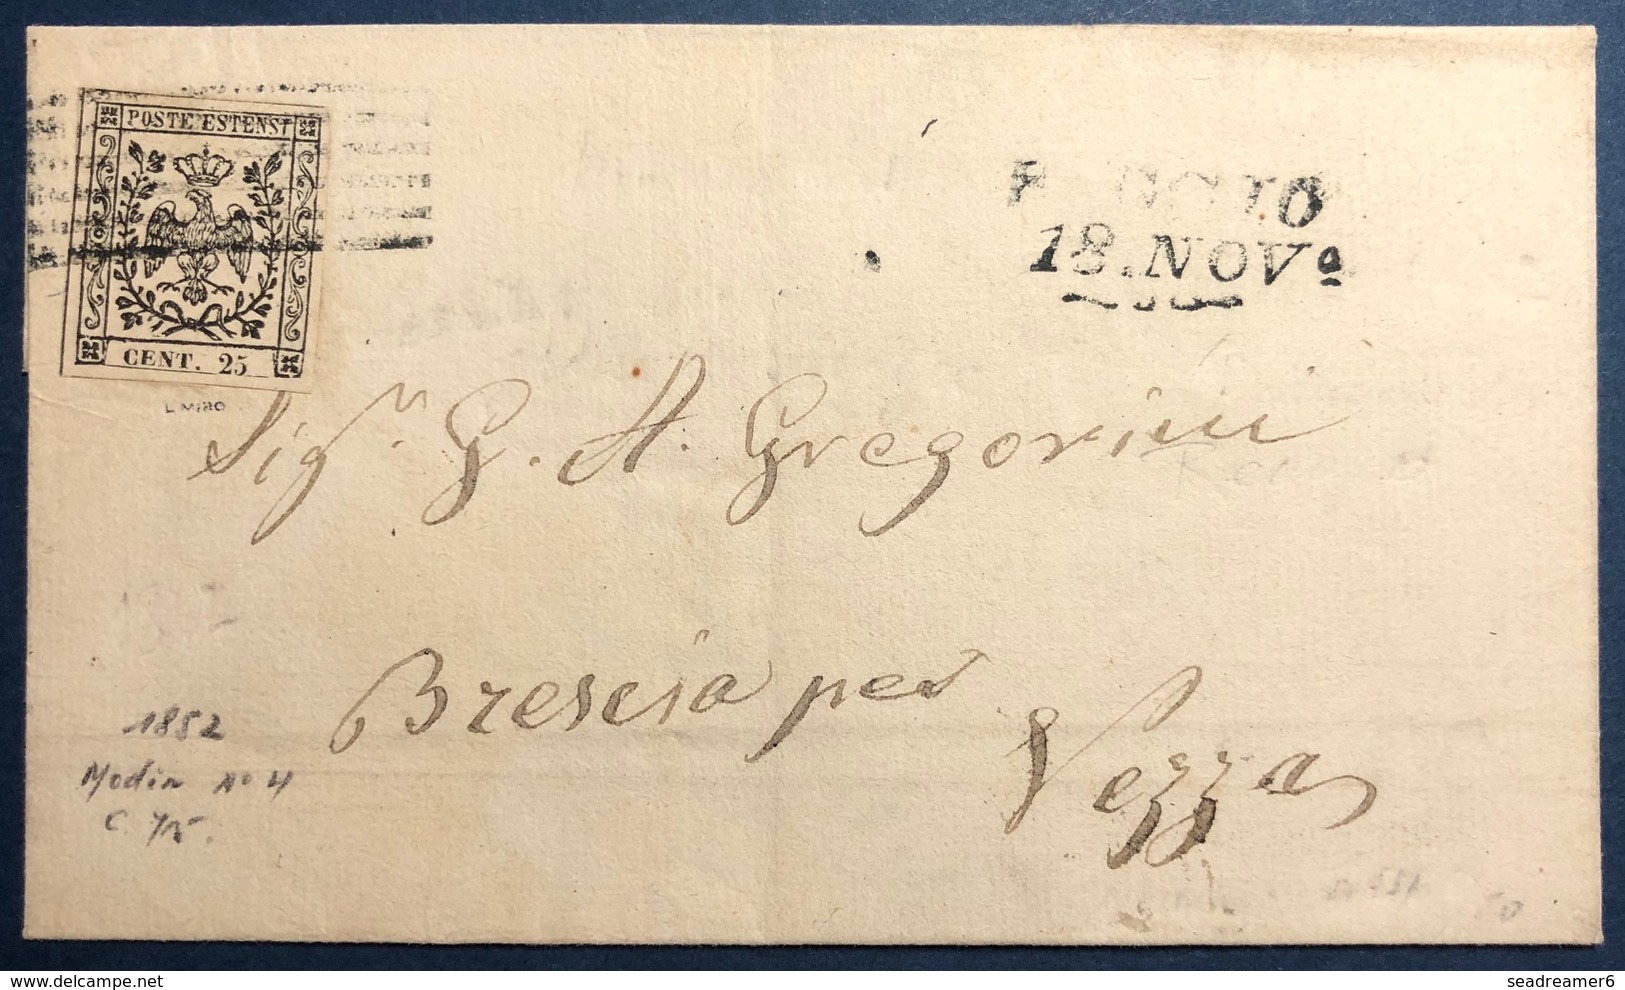 POSTE ESTENSI
CENT. 25
L. MIRO
GGIO
18. NOVᵃ
Sigʳ. G. A. Gregorini
Brescia per
Vezza
1852
Moden Nº 4
C.
© Delcampe.net
seadreamer6